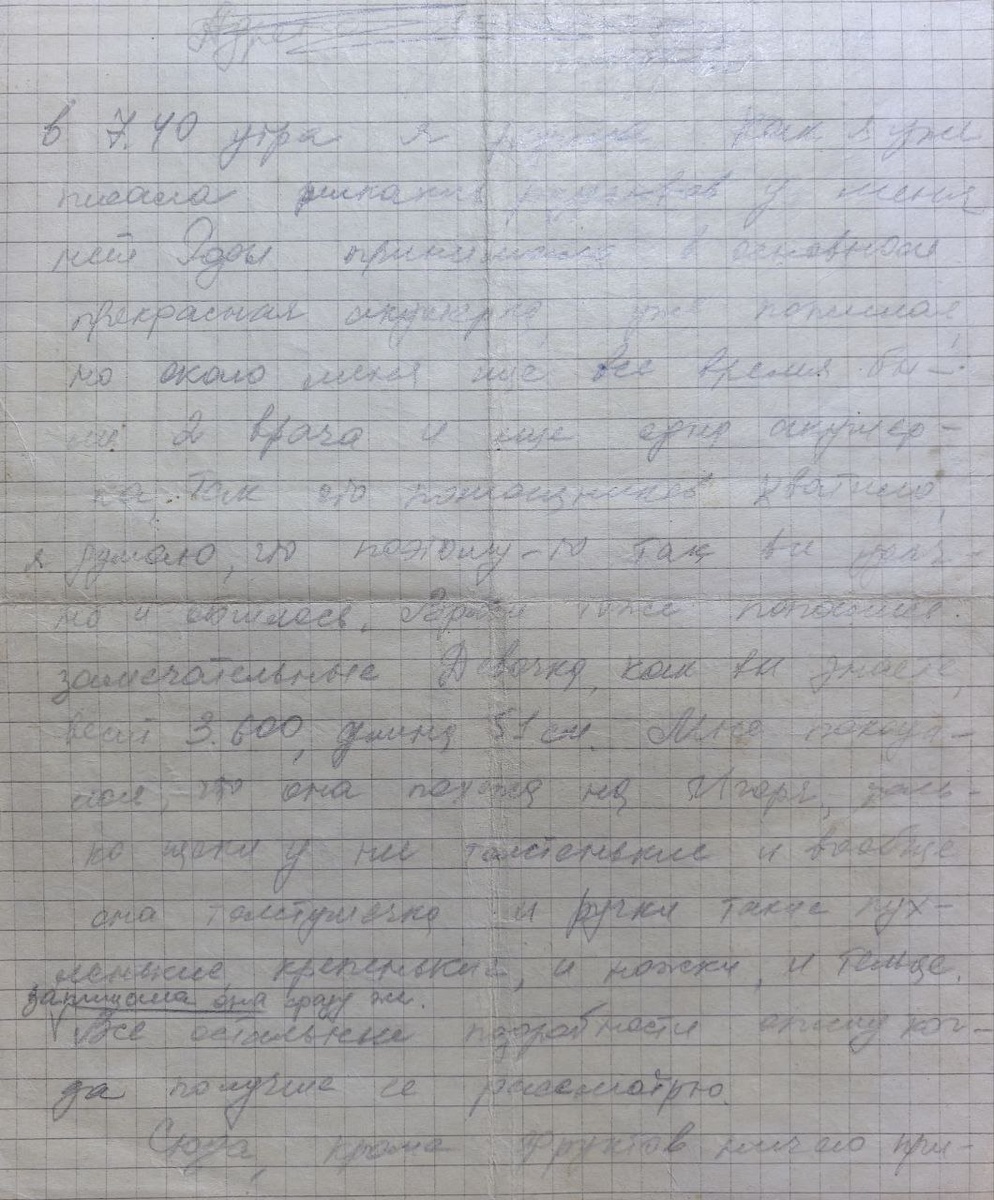 в 7.40 утра я родила. Как я уже
писала никаких разрывов у меня
нет. Роды принимала в основном
прекрасная акушерка, уже пожилая,
но около меня еще все время бы-
ли 2 врача и еще одна акушер-
ка. Так что помощников хватило,
я думаю, что поэтому-то так все удач-
но и сошлось. Врачи тоже попались
замечательные. Девочка, как вы знаете,
весит 3.600, длина 51 см. Мне показа-
лось, что она похожа на Игоря, толь-
ко щеки у нее толстенькие и вообще
она толстушечка и ручки такие пух-
ленькие, крепенькие, и ножки, и тельце.
запищала она сразу же.
Все остальные подробности опишу ког-
да получше ее рассмотрю.
Сюда, кроме фруктов ничего при-